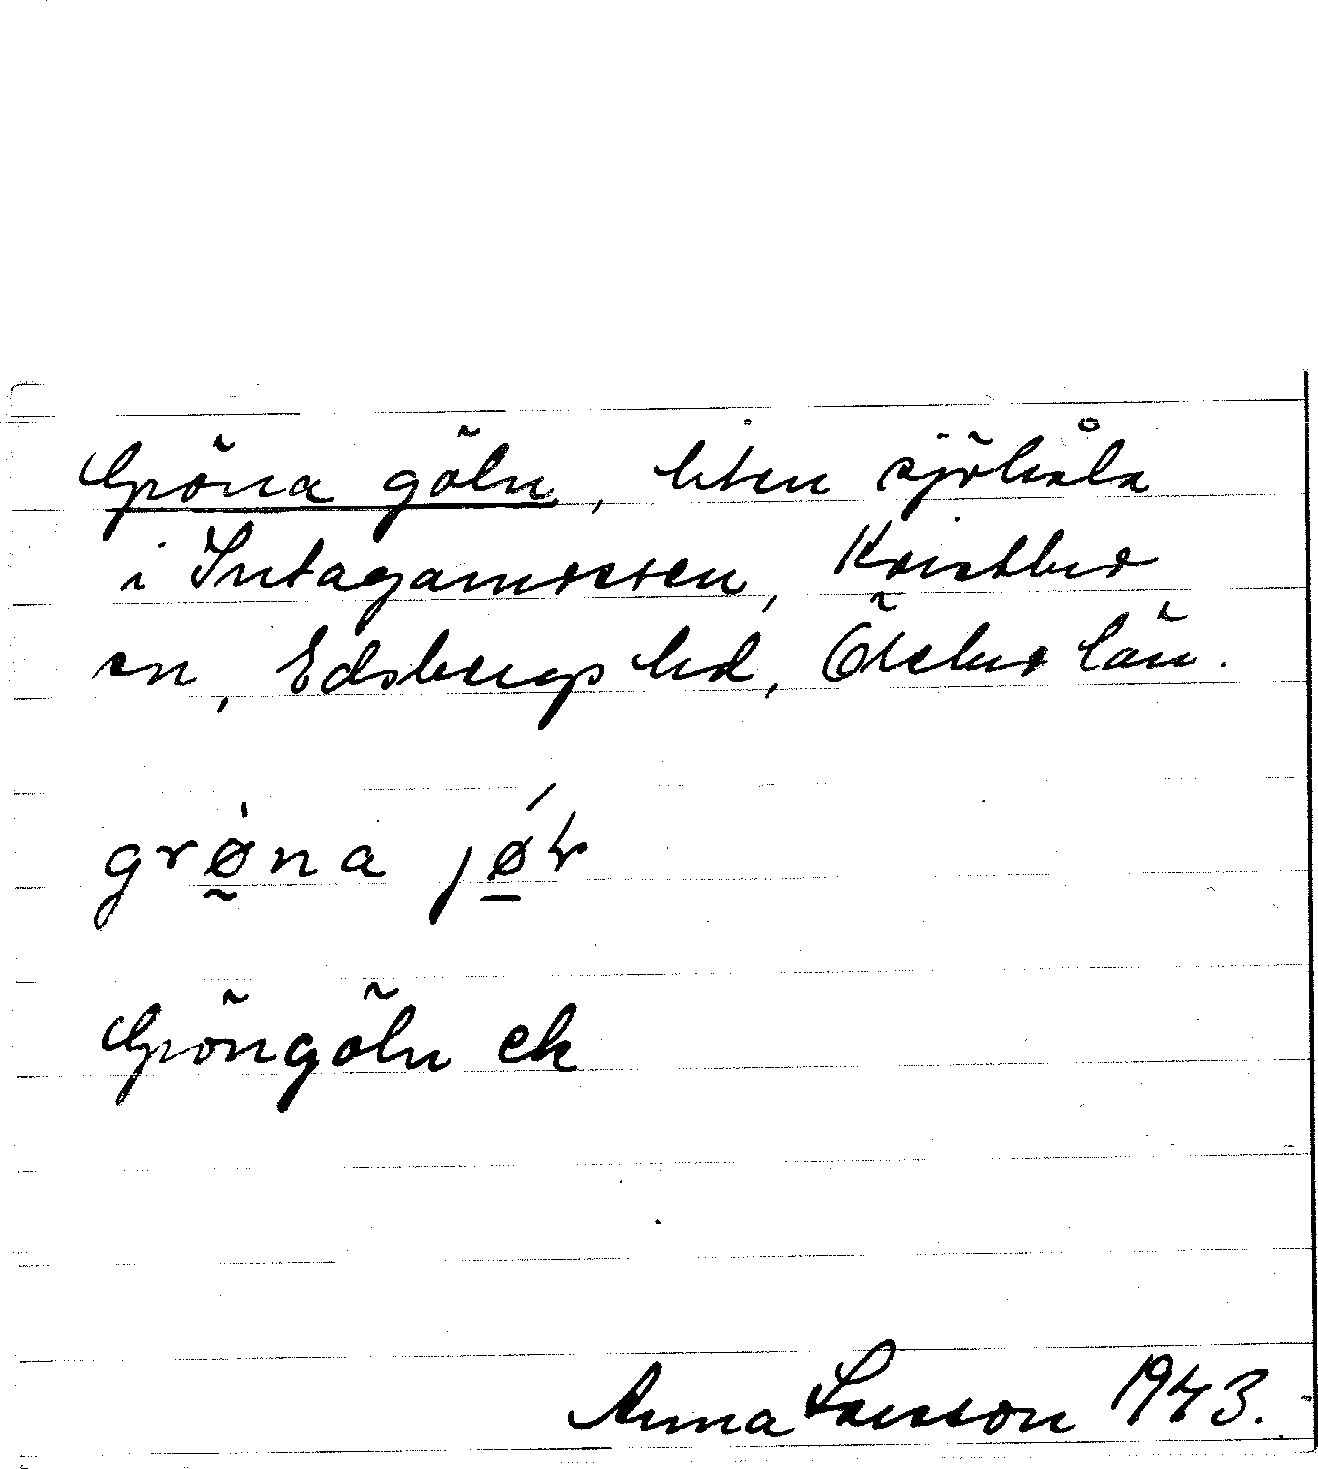 Gröna göln, liten sjöhåla
i Intagamossen, Kvistbro
sn, Edsbergs hd, Örebro län.
grø̀na jǿɫ
Gröngöln ek
Anna Larsson 1943.